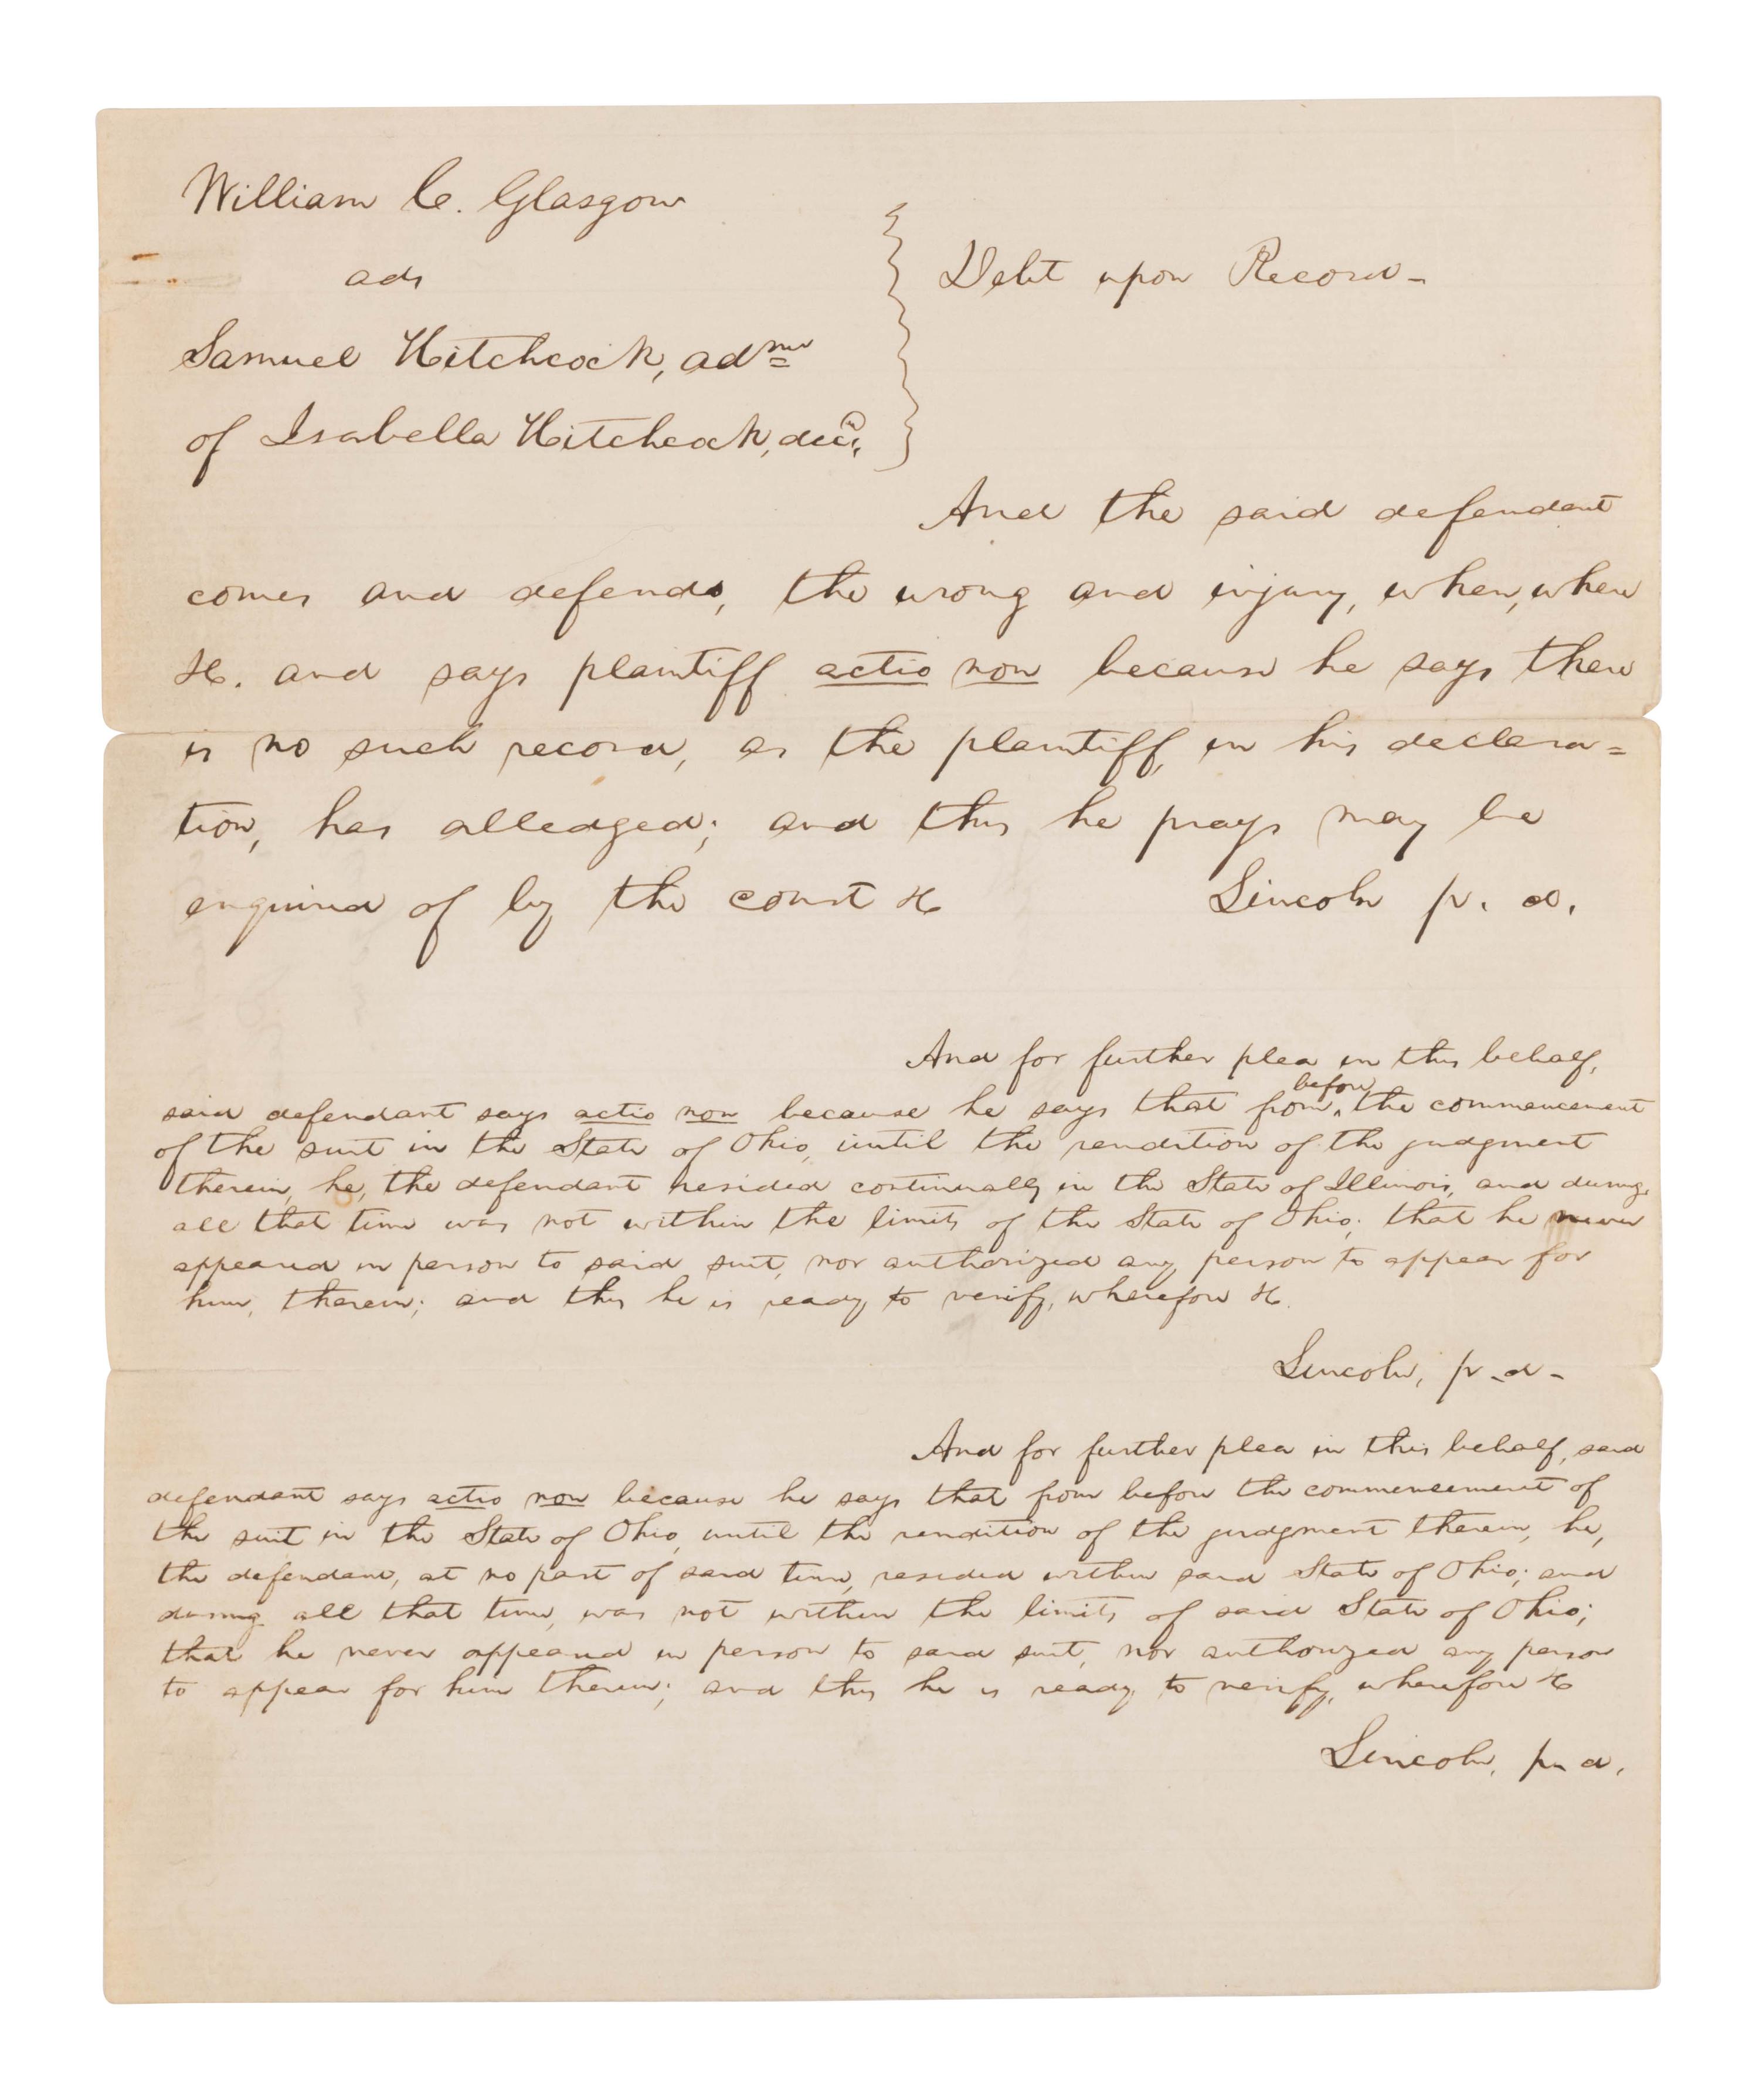 William C. Glasgow
ads
Samuel Hitchcock, admr
of Isabella Hitchcock, decd.
Debt upon Record-
And the said defendant
comes and defends, the wrong and injury, when, where
&c. and says plaintiff actio non because he says there
is no such record, as the plaintiff, in his declara=
tion, has alledged; and this he prays may be
enquired of by the court &c
Lincoln p. d.
And for further plea in this behalf,
said defendant says actio non because he says that from before the commencement
of the suit in the State of Ohio, until the rendition of the judgment
therein, he, the defendant resided continually in the State of Illinois, and during
all that time was not within the limits of the State of Ohio; that he never
appeared in person to said suit, nor authorized any person to appear for
him, therein; and this he is ready to verify, wherefore &c.
Lincoln, p-d-
And for further plea in this behalf, said
defendant says actio non because he says that from before the commencement of
the suit in the State of Ohio, until the rendition of the judgment therein, he,
the defendant, at no part of said time, resided within said State of Ohio; and
during all that time, was not within the limits of said State of Ohio;
that he never appeared in person to said suit, nor authorized any person
to appear for him therein; and this he is ready to verify, wherefore &c
Lincoln, p. d.